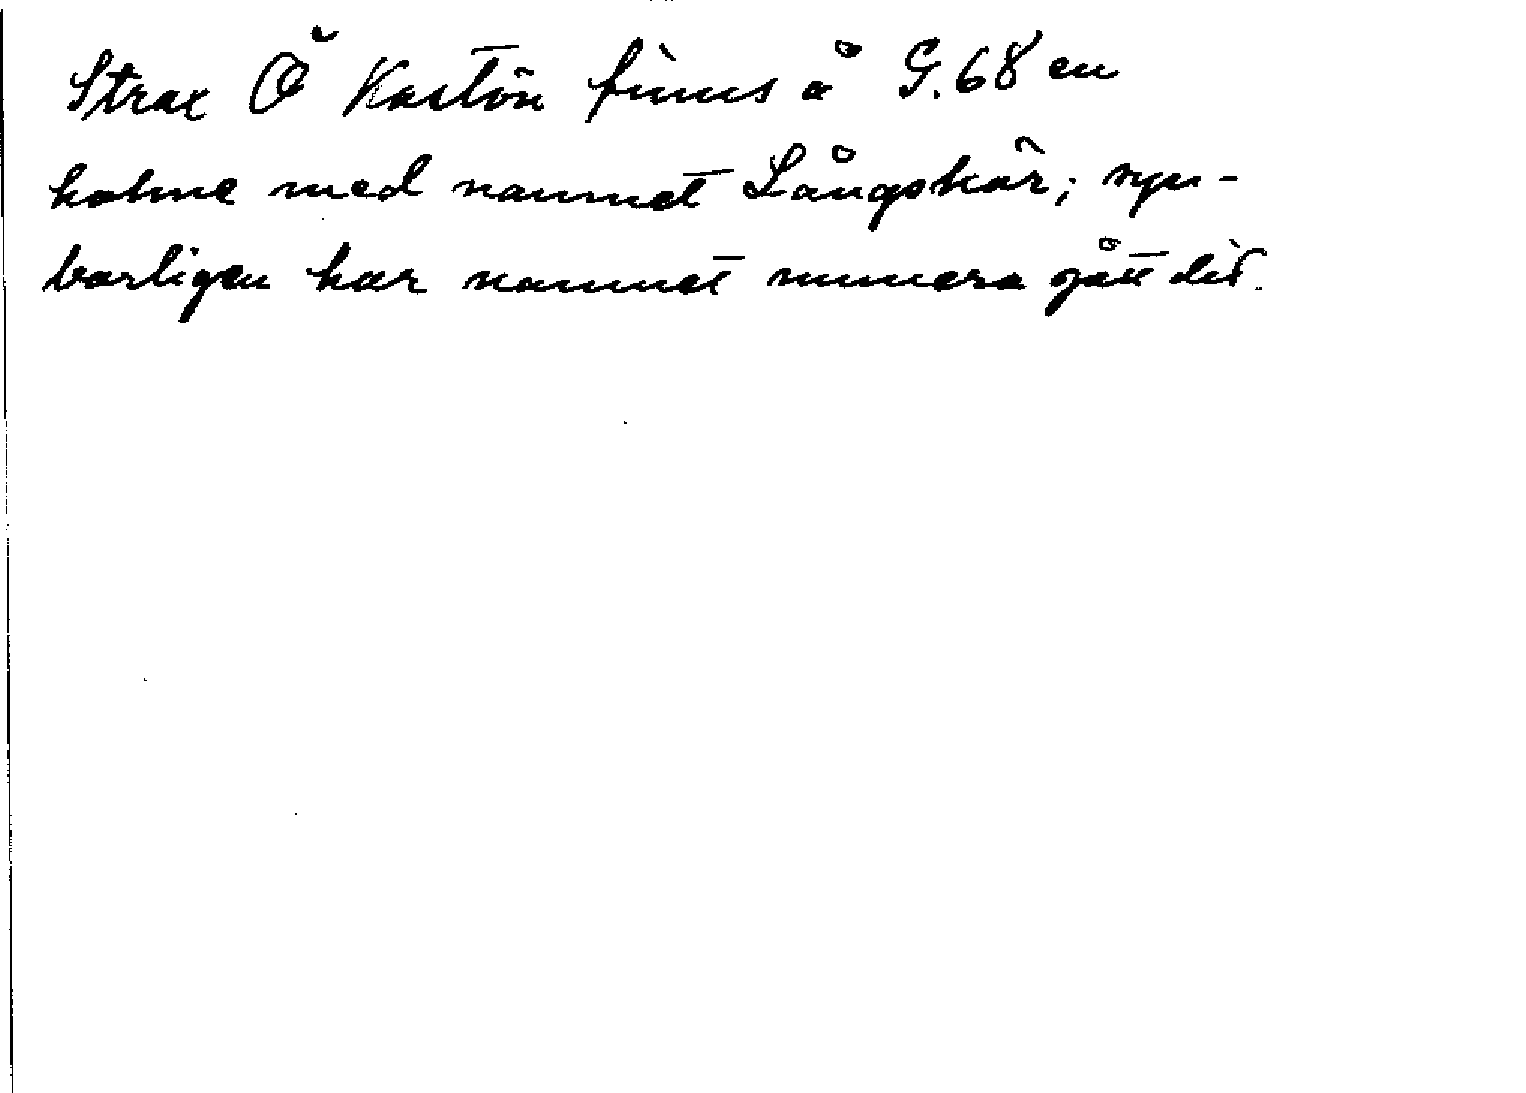 Strax Ö Kastön finns å G. 68 en
holme med namnet Långskär; syn-
barligen har namnet numera gått dit.